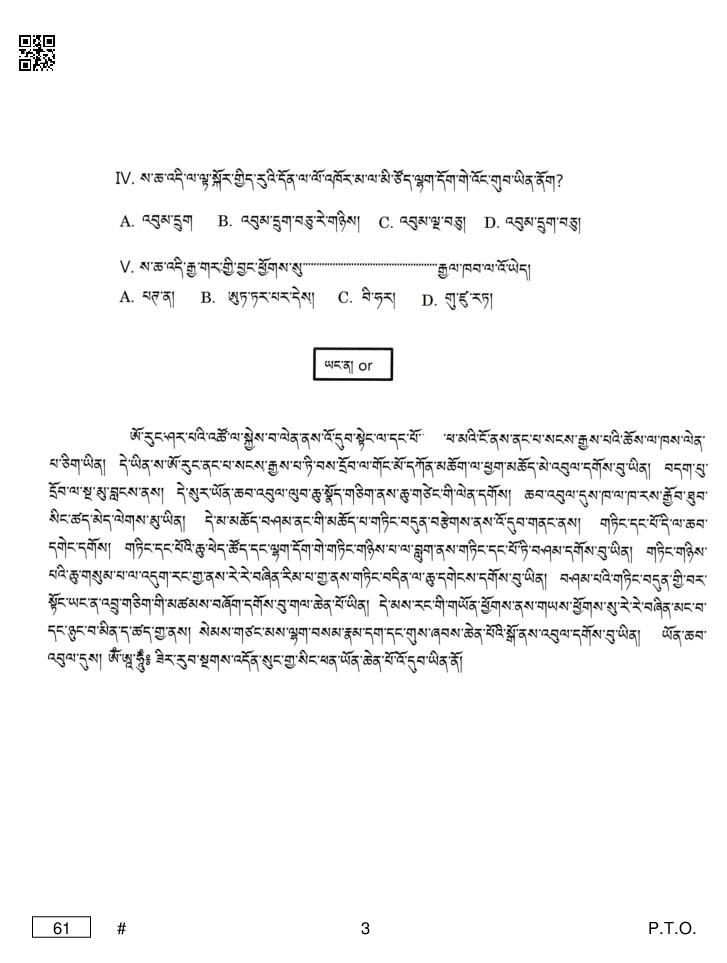 IV. ས་ཆ་འདི་ལ་ལྟ་སྐོར་གྱིད་རུའི་དོན་ལ་ལོ་འཁོར་མ་ལ་མི་ཙོད་ལྷག་དོག་གེ་འོང་གུབ་ཡིན་ནོག?
A. འབུམ་དྲུག B. འབུམ་དྲུག་བཅུ་རེ་གཉིས། C. འབུམ་ལྔ་བཅུ། D. འབུམ་དྲུག་བཅུ།
V. ས་ཆ་འདི་རྒྱ་གར་གྱི་བྱང་ཕྱོགས་སུ་........................................རྒྱལ་ཁབ་ལ་འོ་ཡེད།
A. པཊ་ན། B. ཨུཏ་ཏར་པར་དེས། C. བི་ཧར། D. གུ་ཛུ་རཏ།
ཡང་ན། or
ཨོ་རུང་ཤར་པའི་འཚོ་ལ་སྐྱེས་བ་ལེན་ནས་འོ་དུབ་སྟེང་ལ་དང་པོ་ ཕ་མའི་ངོ་ནས་ནང་པ་སངས་རྒྱས་པའི་ཆོས་ལ་ཁས་ལེན་
པ་ཅིག་ཡིན། དེ་ཡིན་ས་ཨོ་རུང་ནང་པ་སངས་རྒྱས་པ་ཏི་བས་དྲོབ་ལ་གོང་མོ་དཀོན་མཆོག་ལ་ཕྱག་མཆོད་མེ་འབུལ་དགོས་བུ་ཡིན། བདག་པུ་
དྲོབ་ལ་སྔ་མུ་བླངས་ནས། དེ་སུར་ཡོན་ཆབ་འབུལ་ལུབ་ཆུ་སྣོད་གཅིག་ནས་ཆུ་གཙེང་གི་ལེན་དགོས། ཆབ་འབུལ་དུས་ཁ་ལ་ཁ་རས་རྒྱོབ་ཐུབ་
སིང་ཚད་མེད་ལེགས་མུ་ཡིན། དེ་མ་མཆོད་བཤམ་ནང་གི་མཆོད་པ་གཏིང་བདུན་བརྩེགས་ནས་འོ་དུབ་གནང་ནས། གཏིང་དང་པོ་དི་ལ་ཆབ་
དགེང་དགོས། གཏིང་དང་པོའི་ཆུ་ཕེད་ཚོད་དང་ལྷག་དོག་གེ་གཏིང་གཉིས་པ་ལ་བླུག་ནས་གཏིང་དང་པོ་ཏི་བཤམ་དགོས་བུ་ཡིན། གཏིང་གཉིས་
པའི་ཆུ་གསུམ་པ་ལ་འདུག་རང་གྱ་ནས་རེ་རེ་བཞིན་རིམ་པ་གྱ་ནས་གཏིང་བདིན་ལ་ཆུ་དགེངས་དགོས་བུ་ཡིན། བཤམ་པའི་གཏིང་བདུན་གྱི་བར་
སྟོང་ཡང་ན་འབྲུ་གཅིག་གི་མཚམས་བཞོག་དགོས་བུ་གལ་ཆེན་པོ་ཡིན། དེ་མས་རང་གི་གཡོན་ཕྱོགས་ནས་གཡས་ཕྱོགས་སུ་རེ་རེ་བཞིན་མང་བ་
དང་ཉུང་བ་མིན་ད་ཚད་གྱ་ནས། སེམས་གཙང་མས་ལྷག་བསམ་རྣམ་དག་དང་གུས་ཞབས་ཆེན་པོའི་སྒོ་ནས་འབུལ་དགོས་བུ་ཡིན། ཡོན་ཆབ་
འབུལ་དུས། ཨོཾ་ཨཱཿ་ཧཱུྃ༔ ཟིར་རུབ་སྔགས་འདོན་སུང་གྱ་སིང་ཕན་ཡོན་ཆེན་པོ་འོ་དུབ་ཡིན་ནོ།
61 # 3 P.T.O.